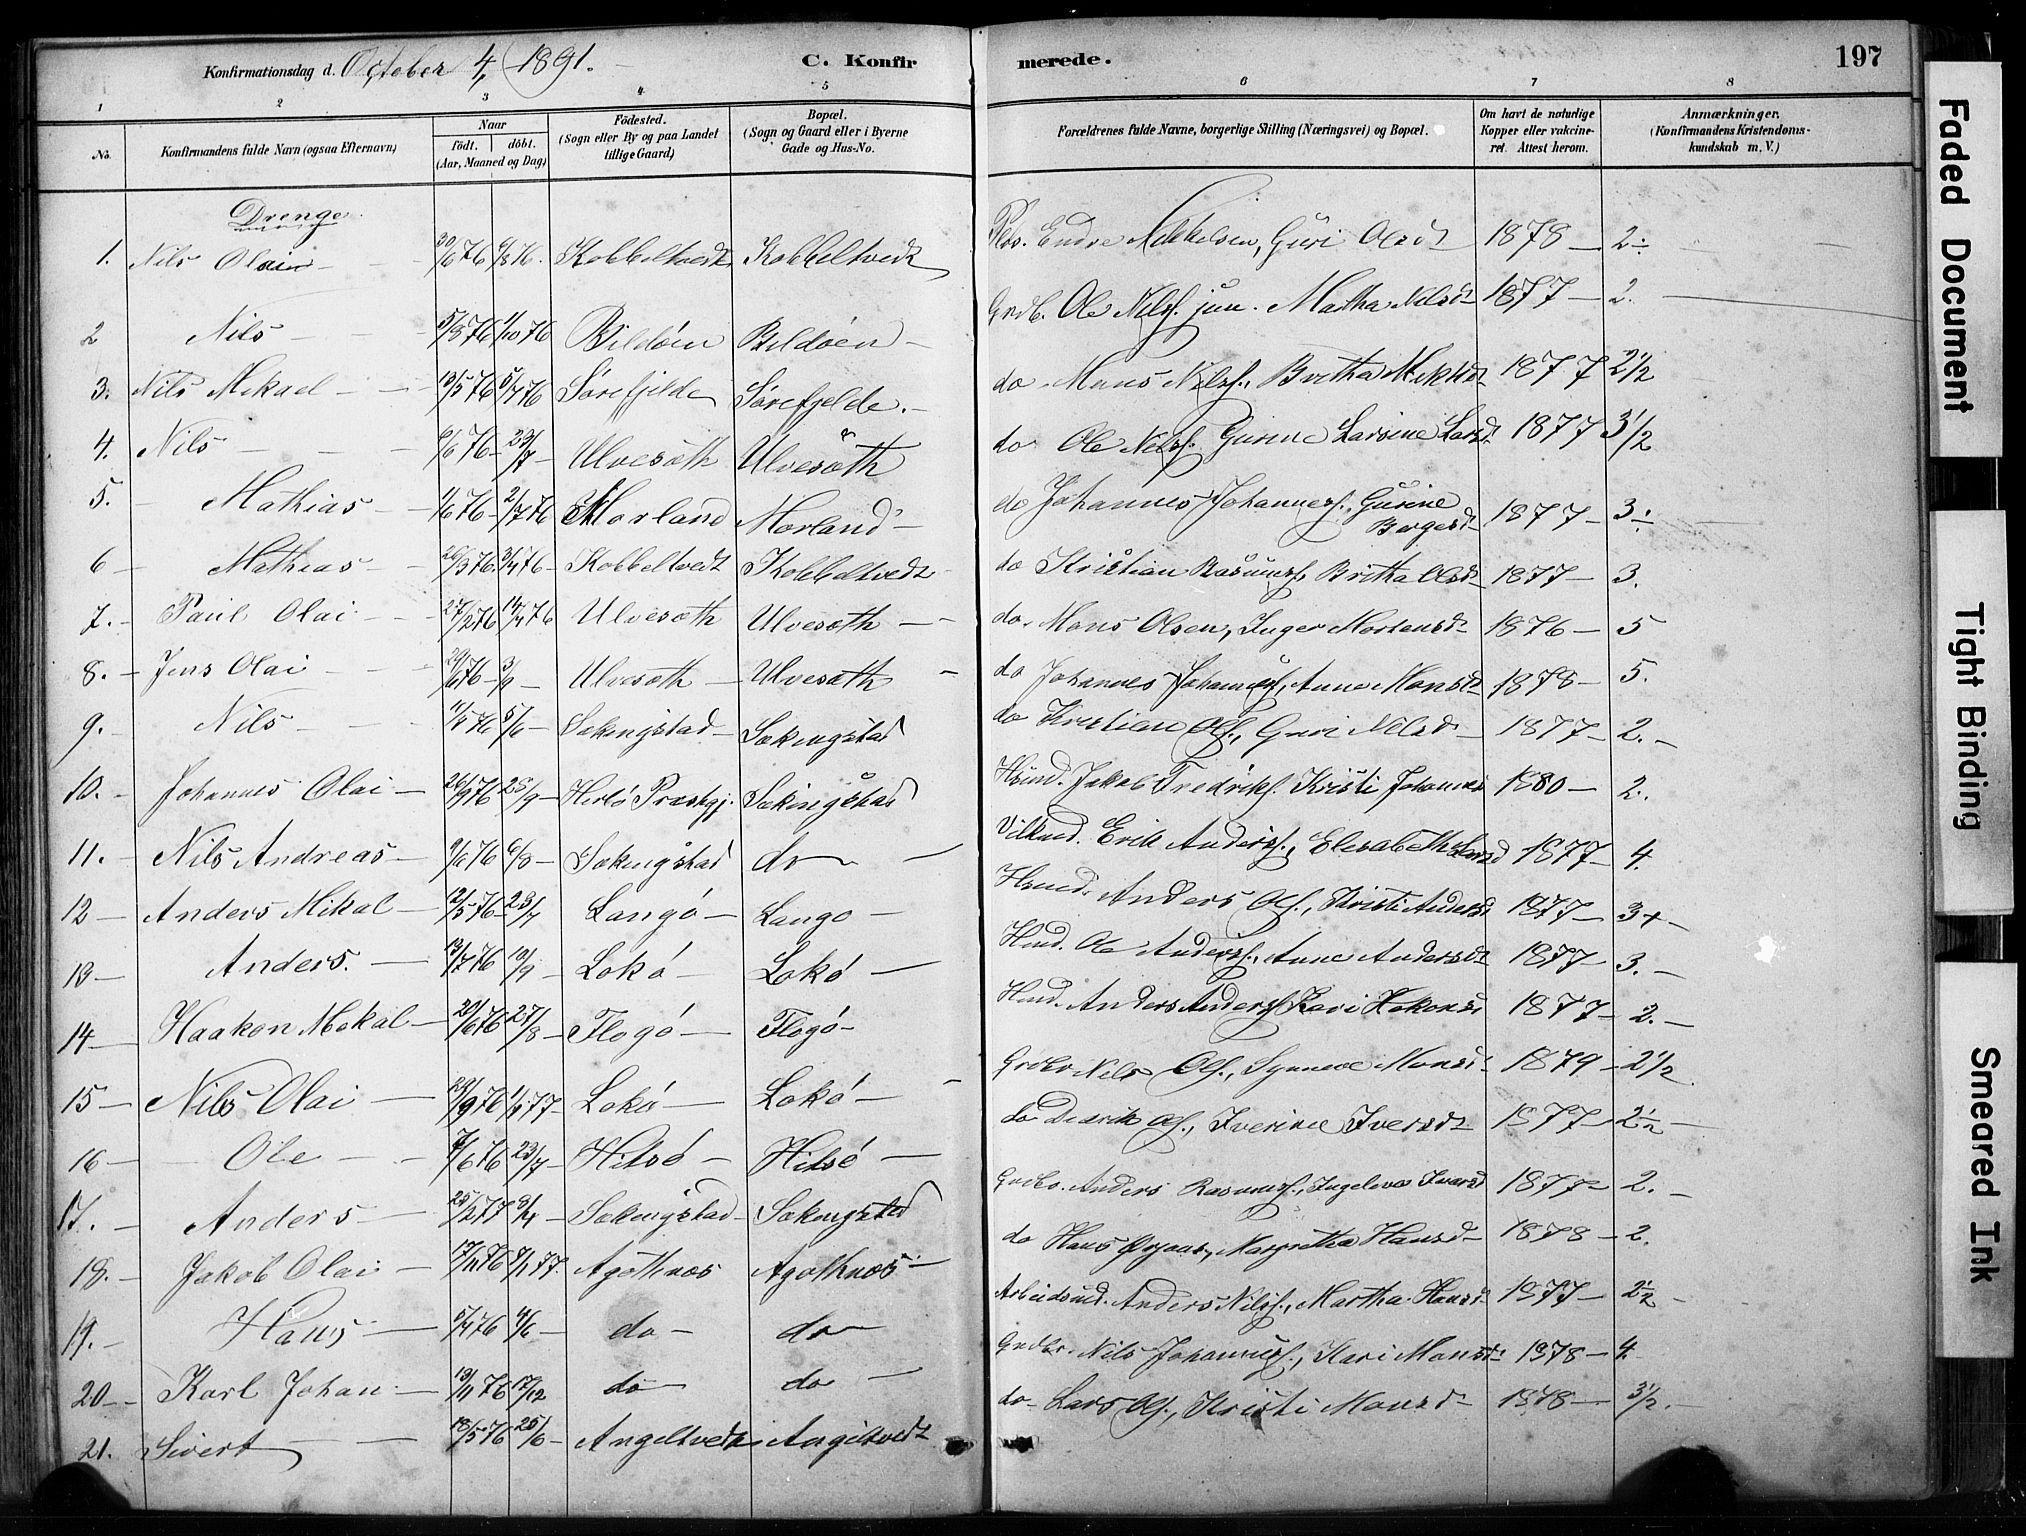 Konfirmationsdag d. October 4, 1891. C. Konfirmerede. 197
1 2 3 4 5 6 7 8
No. Konfirmandens fulde Navn (ogsaa Efternavn) Naar født. døbt. (Aar, Maaned og Dag) Fødested. (Sogn eller By og paa Landet tillige Gaard) Bopæl. (Sogn og Gaard eller i Byerne Gade og Hus-No. Forældrenes fulde Navne, borgerlige Stilling (Næringsvei) og Bopæl. Om havt de naturlige Kopper eller vakcineret. Attest herom. Anmærkninger. (Konfirmandens Kristendomskundskab m. V.)
Drenge.
1. Nils Olai 30/6 76 6/8 76. Kobbeltvedt Kobbeltvedt Endre Mikkelsen, Guri Olsdt 1878 2÷
2 Nils 5/8 76 1/10 76 Bildøen Bildøen Grdb. Ole Nilss. jun. Martha Nilsdt 1877 2.
3. Nils Mikael 13/5 76 5/7 76 Sørefjelde Sørefjelde. do Mons Nilss., Britha Mikkdt 1877 2 1/2
4. Nils 6/6 76 23/7 Ulvesøth Ulvesøth do Ole Nilss. Gurine Larsine Larsd. 1877 3 1/2
5. Mathias 1/6 76 2/7 76 Morland Morland do Johannes Johanness., Gurine Borgesdt 1877 3÷
6 Mathias 26/3 76. 3/4 76 Kobbeltvedt Kobbeltvedt do Kristian Rasmuss. Britha Olsdt 1877 3.
7. Paul Olai 27/2 76 17/4 76 Ulvesøth Ulvesøth do. Mons Olsen, Inger Mortensdt 1876 5
8. Jens Olai 29/6 76 3/9 Ulvesøth Ulvesøth do Johannes Johanness., Anne Monsdt 1878 5.
9. Nils 11/4 76 5/6 Sekingstad Sekingstad do Kristian Ols., Guri Nilsdt 1877 2.
10. Johannes Olai 26/9 76 28/9 Herlø Præstgj. Sekingstad Hsmd. Jakob Fredriks. Kristi Johannesd 1880 2.
11. Nils Andreas 9/6 76 6/8 Sekingstad do Erik Anderss., Elisabeth Larsd 1877 4.
12 Anders Mikal 12/5 76 23/7 Langø Langø Hsmd. Anders Ols., Kristi Andersd 1877 3+
13 Anders. 13/7 76 10/9 Lokø Lokø Hsmd. Ole Anderss., Anne Andersdt 1877 3.
14 Haakon Mikal 20/6 76 27/8 Flogø Flogø Hsmd. Anders Anderss. Kari Hakonsd 1877 2.
15 Nils Olai 29/9 76 1/1 77 Lokø Lokø Grdbr Nils Ols., Synneve Monsd 1879 2 1/2
16 Ole 7/6 76 23/7 Hitsø Hitsø do Didrik Ols., Iverine Iversdt 1877 2 1/2
17. Anders 25/2 77 8/4 Sekingstad Sekingstad Grdbr. Anders Rasmuss., Ingeleva Ivarsd 1877 2.
18. Jakob Olai 17/11 76 7/1 77. Agothnæs Agothnæs do Hans Ørjans., Margretha Hansd 1878 2.
19. Hans 5/4 76 4/6 do do Arbeidsmd. Anders Nilss., Martha Hansdt 1877 2 1/2
20 Karl Johan 13/11 76 17/12 do do Grdbr. Nils Johanness., Kari Monsdt 1878 4.
21. Sivert 18/5 76 25/6 Angeltvedt Angeltvedt do Lars Ols., Kristi Monsdt 1878 3 1/2.
Faded Document
Tight Binding
Smeared Ink